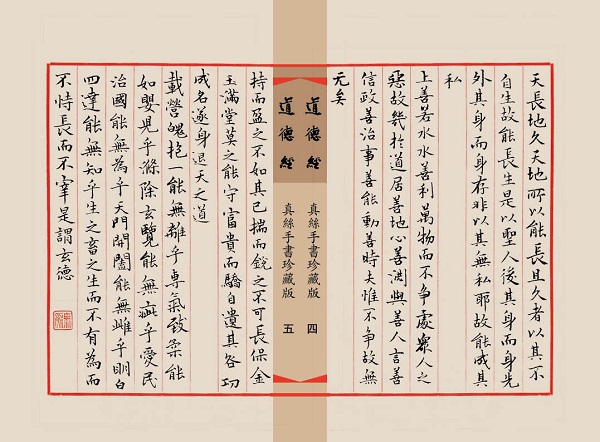 天長地久天地所以能長且久者以其不
自生故能長生是以聖人後其身而身先
外其身而身存非以其無私耶故能成其
私
上善若水水善利萬物而不争處衆人之
惡故幾於道居善地心善淵與善人言善
信政善治事善能動善時夫惟不争故無
尤矣
道德經 真絲手書珍藏版 四
道德經 真絲手書珍藏版 五
持而盈之不如其已揣而銳之不可長保金
玉滿堂莫之能守富貴而驕自遺其咎功
成名遂身退天之道
載營魄抱一能無離乎專氣致柔能
如嬰兒乎滌除玄覽能無疵乎愛民
治國能無為乎天門開闔能無雌乎明白
四達能無知乎生之畜之生而不有為而
不恃長而不宰是謂玄德